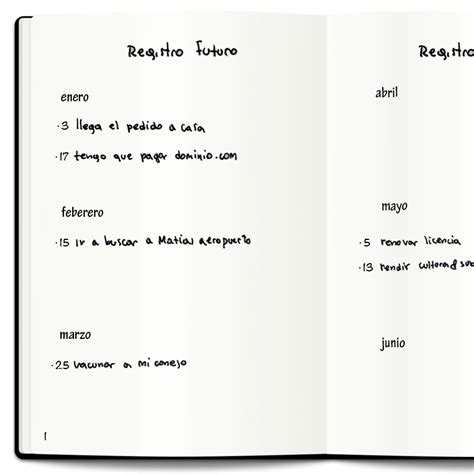 Registro Futuro
enero
·3 llega el pedido a casa
·17 tengo que pagar dominio.com
feberero
·15 ir a buscar a Matias aeropuerto
marzo
·25 vacunar a mi conejo
1
Registro
abril
mayo
·5 renovar licencia
·13 rendir
junio